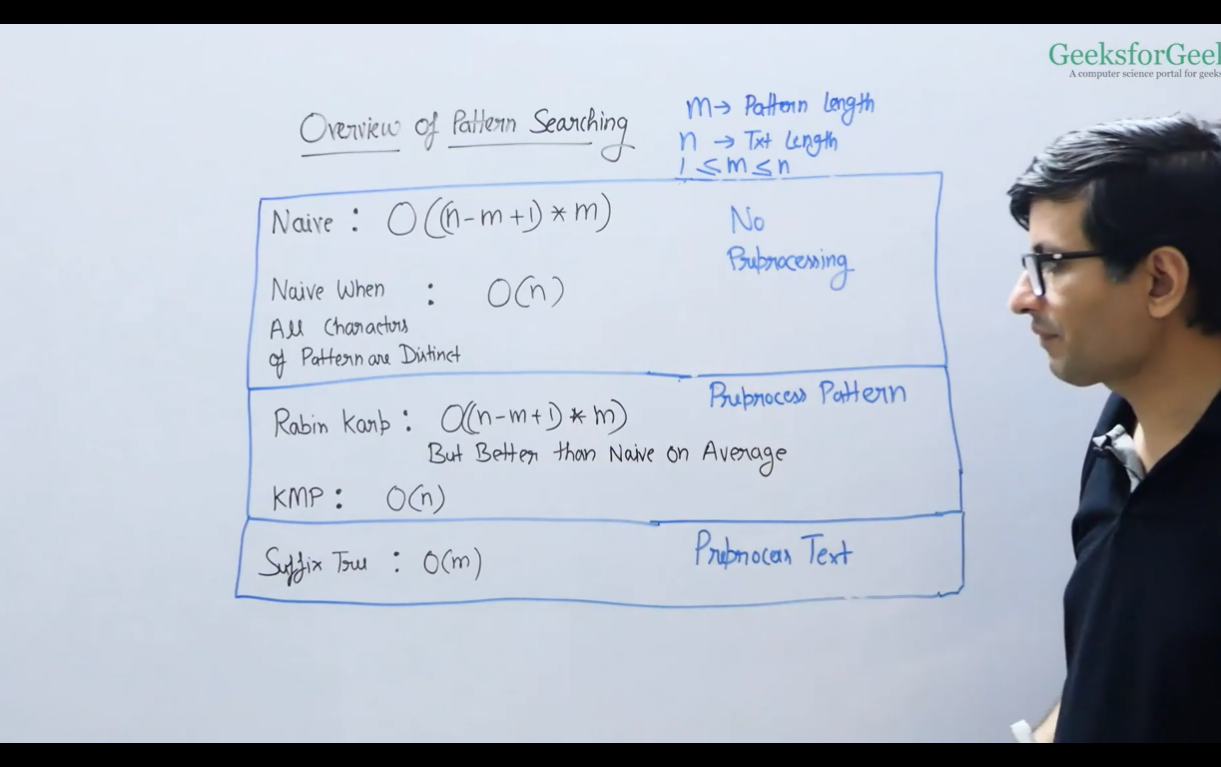 GeeksforGeek
A computer science portal for geeks
Overview of Pattern Searching
m → Pattern Length
n → Txt Length
1 ≤ m ≤ n
Naive : O((n-m+1) * m)
No
Preprocessing
Naive When : O(n)
All Characters
of Pattern are Distinct
Preprocess Pattern
Rabin Karp : O((n-m+1) * m)
But Better than Naive on Average
KMP : O(n)
Suffix Tree : O(m)
Preprocess Text